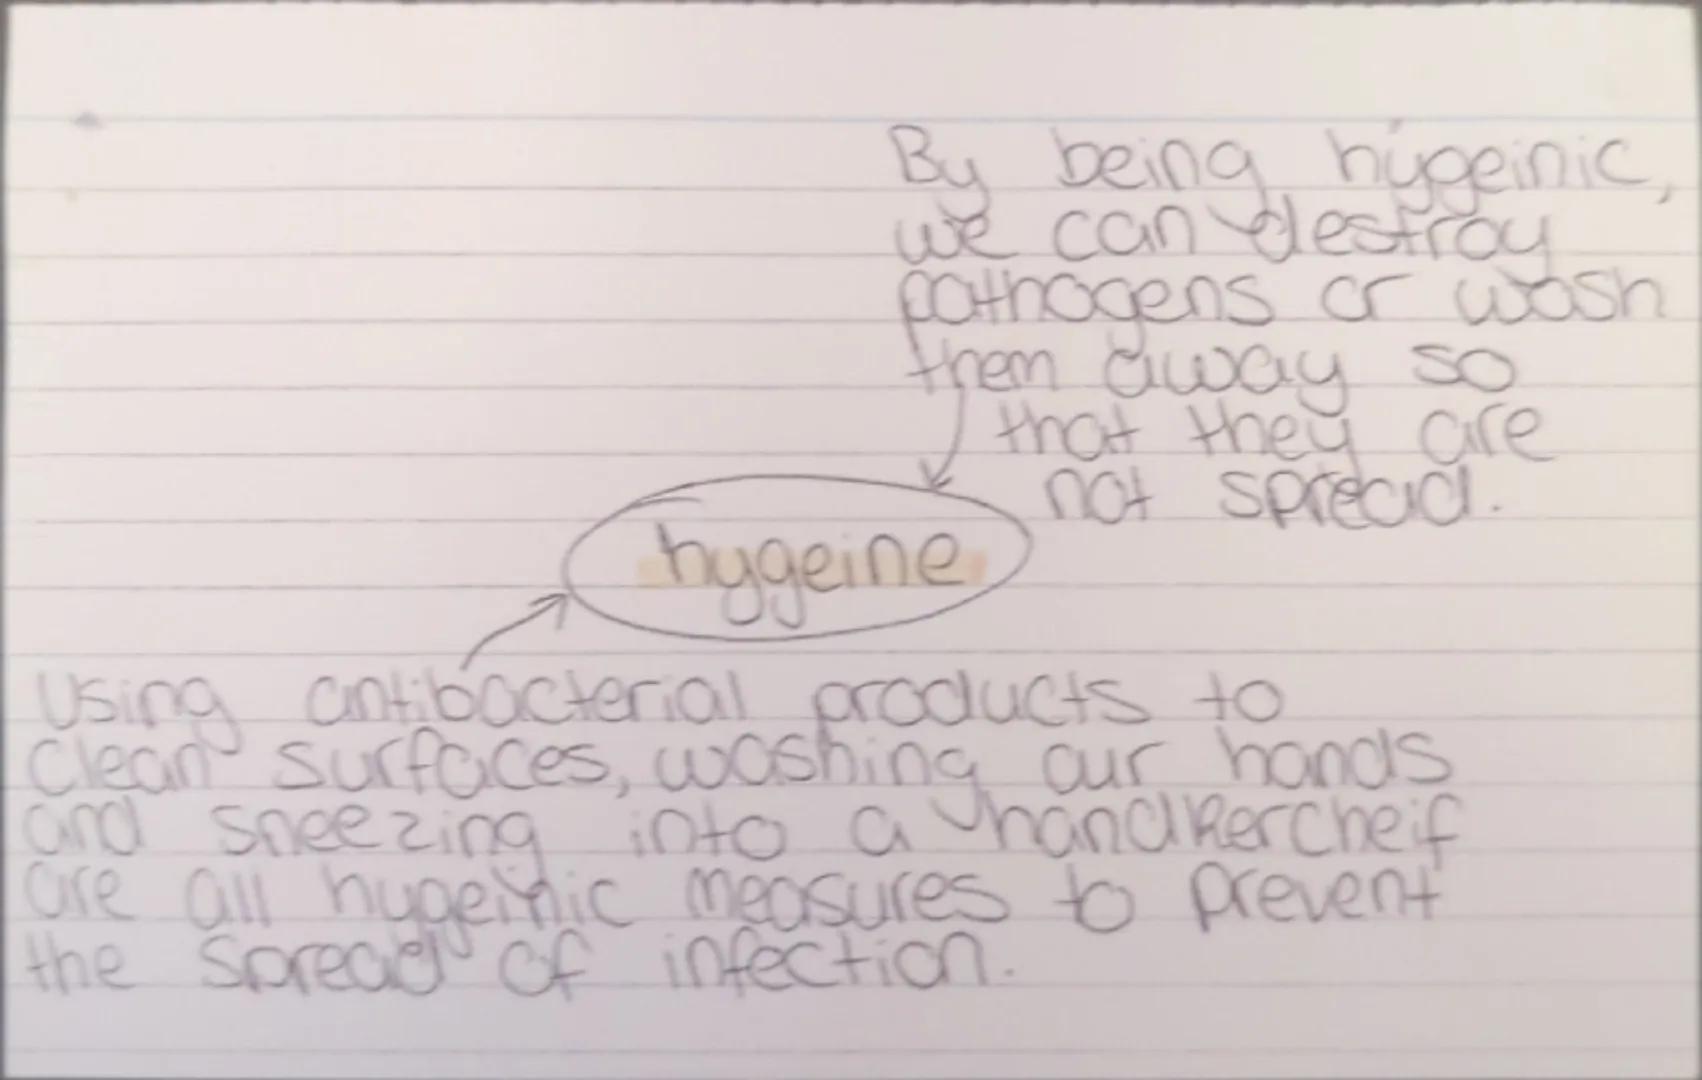 By being hygeinic,
we can destroy
pathogens or wash
them away so
that they are
not spread.
hygeine
Using antibacterial products to
clean surfaces, washing our hands
and sneezing into a handkercheif
are all hygeinic measures to prevent
the spread of infection.